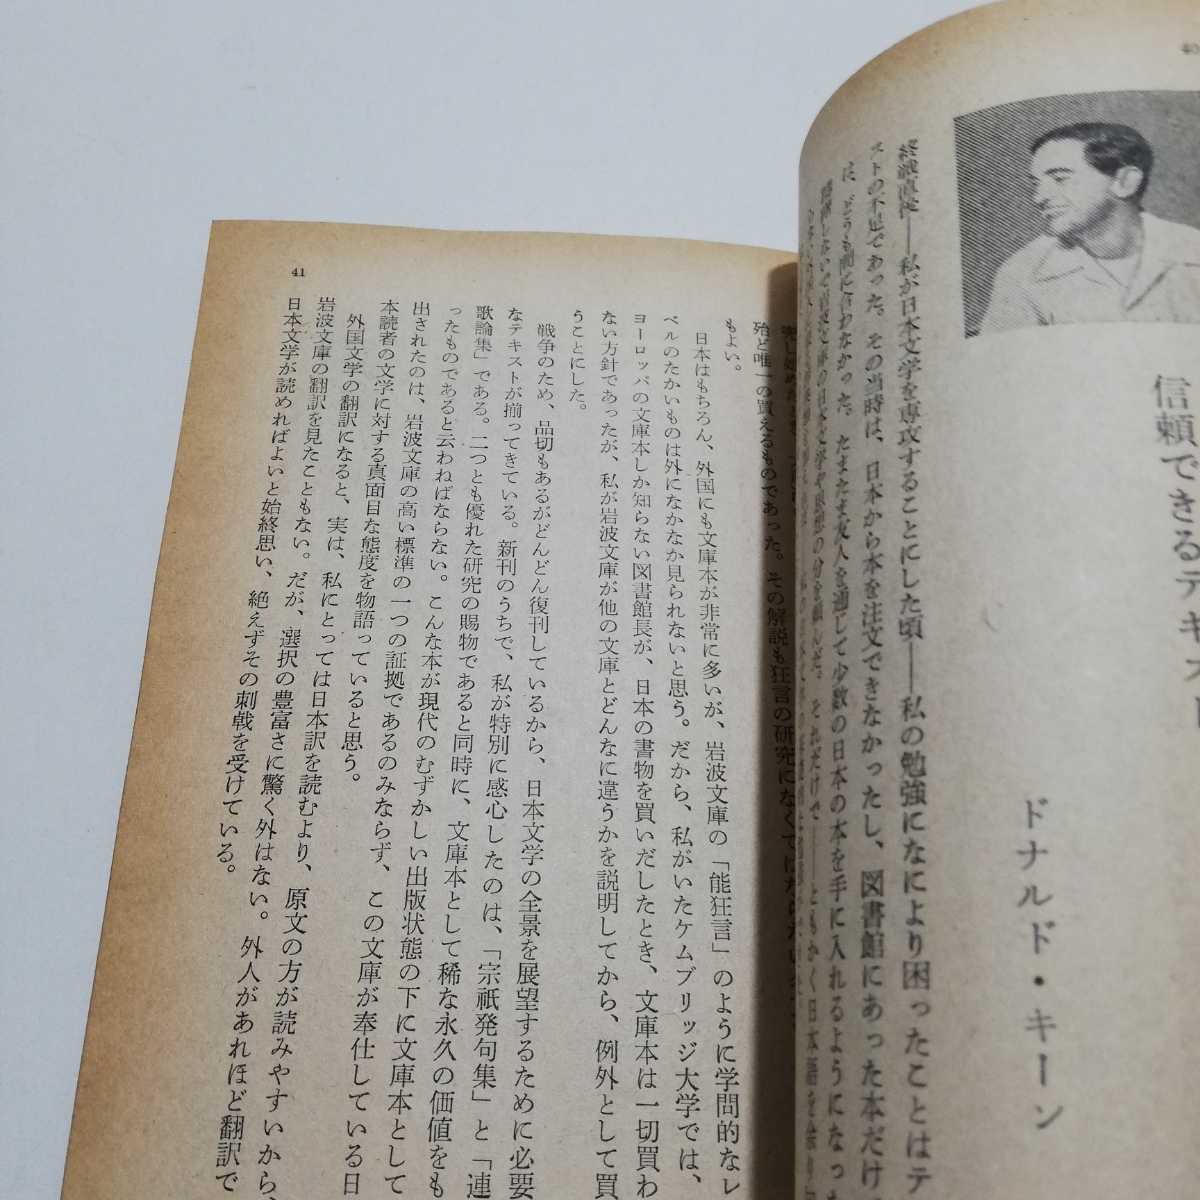 40
信頼できるテキスト
ドナルド・キーン
終戦直後──私が日本文学を専攻することにした頃──私の勉強になにより困ったことはテ
ストの不足であった。その当時は、日本から本を注文できなかったし、図書館にあった本だけ
は、どうも間に合わなかった。たまたま友人を通じて少数の日本の本を手に入れるようになっ
殆ど唯一の買えるものであった。その解説も狂言の研究になくてはならない
もよい。
日本はもちろん、外国にも文庫本が非常に多いが、岩波文庫の「能狂言」のように学問的なレ
ベルのたかいものは外になかなか見られないと思う。だから、私がいたケムブリッジ大学では、
ヨーロッパの文庫本しか知らない図書館長が、日本の書物を買いだしたとき、文庫本は一切買わ
ない方針であったが、私が岩波文庫が他の文庫とどんなに違うかを説明してから、例外として買
うことにした。
戦争のため、品切もあるがどんどん復刊しているから、日本文学の全景を展望するために必要
なテキストが揃ってきている。新刊のうちで、私が特別に感心したのは、「宗祇発句集」と「連
歌論集」である。二つとも優れた研究の賜物であると同時に、文庫本として稀な永久の価値をも
ったものであると云わねばならない。こんな本が現代のむずかしい出版状態の下に文庫本として
出されたのは、岩波文庫の高い標準の一つの証拠であるのみならず、この文庫が奉仕している日
本読者の文学に対する真面目な態度を物語っていると思う。
外国文学の翻訳になると、実は、私にとっては日本訳を読むより、原文の方が読みやすいから、
岩波文庫の翻訳を見たこともない。だが、選択の豊富さに驚く外はない。外人があれほど翻訳で
日本文学が読めればよいと始終思い、絶えずその刺戟を受けている。
41